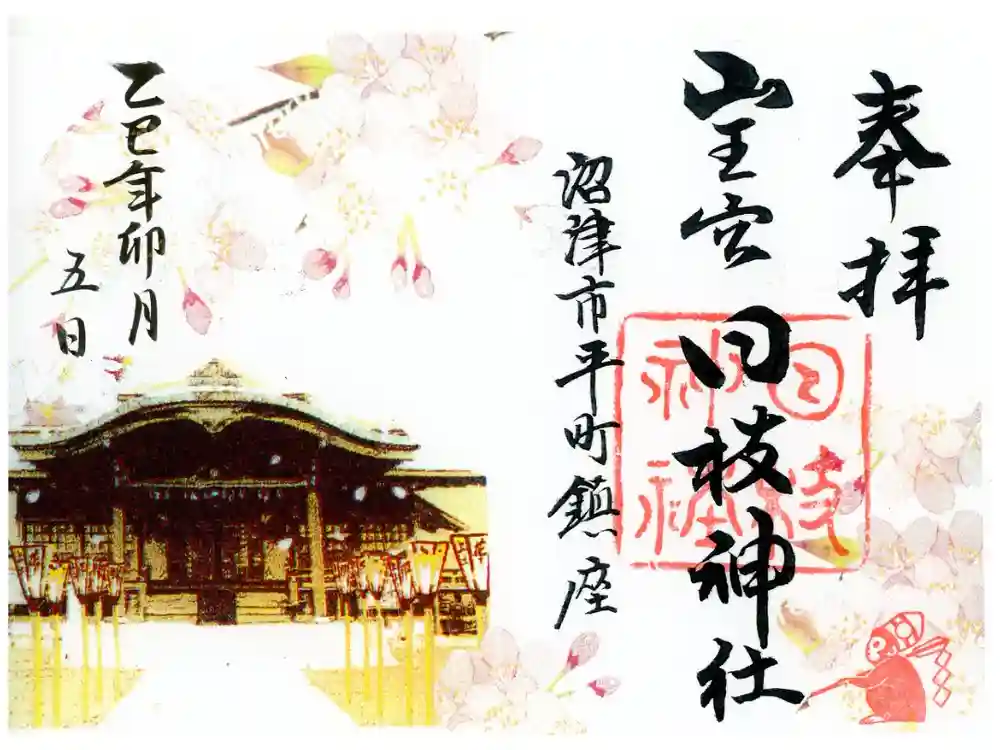 奉拝
山王宮 日枝神社
日枝
神社
沼津市平町鎮座
乙巳年卯月
五日